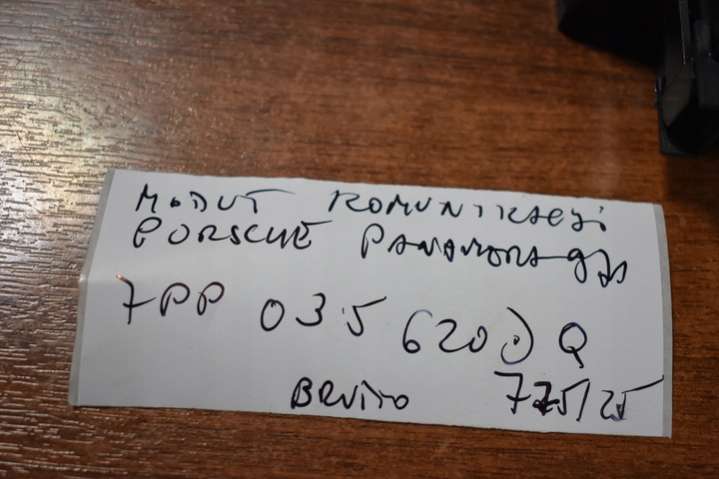 MODUŁ KOMUNIKACJI
PORSCHE PANAMERA 971
7PP 035 620 Q
BRUTTO 775/25